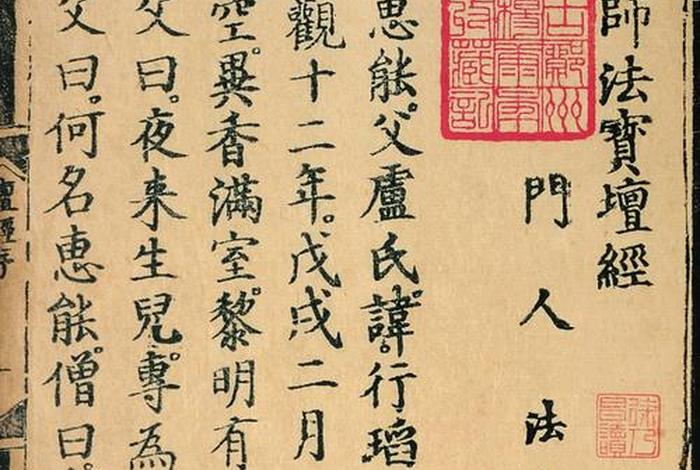 師法寶壇經
門人法
惠能。父盧氏。諱。行瑫
觀十二年。戊戌二月
空。異香滿室。黎明有
父曰。夜来生兒。專為
父曰。何名惠能。僧曰。
壇經序